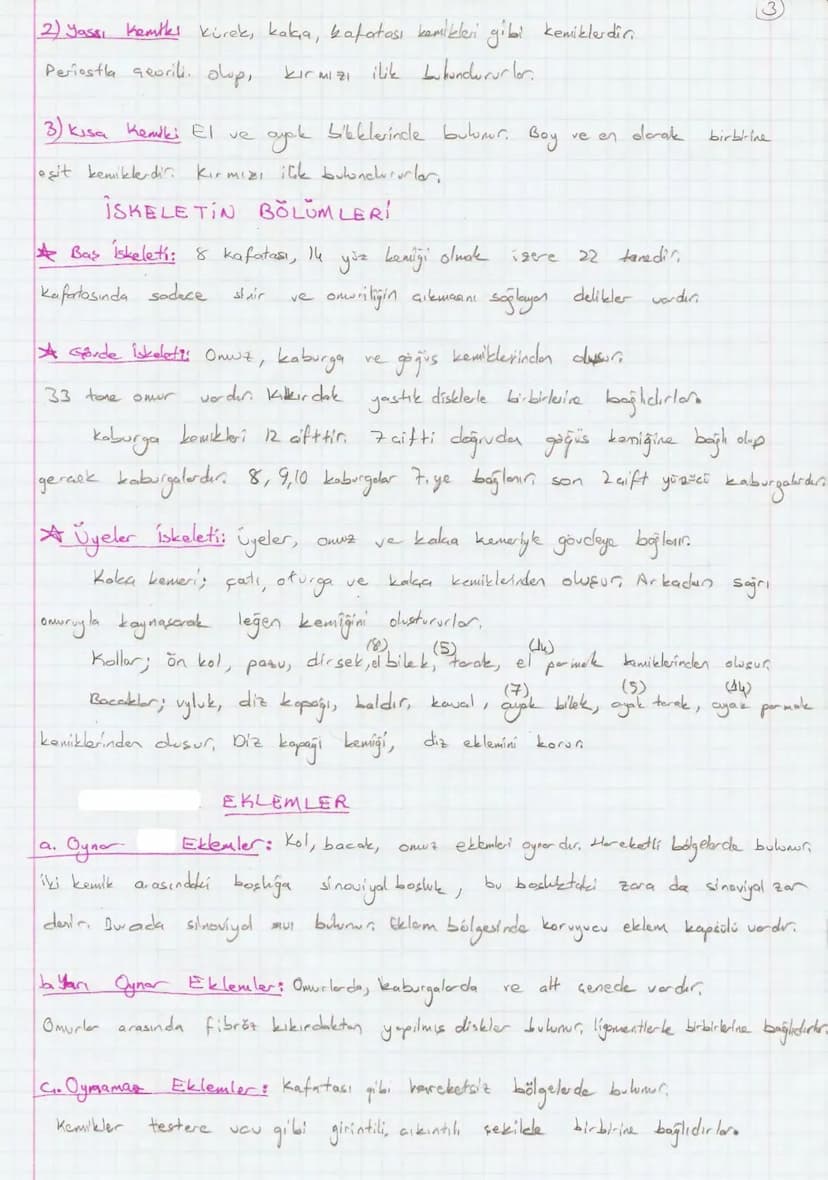 3
2) Yassı Kemikler Kürek, kalça, kafatası kemikleri gibi kemiklerdir.
Periostla çevrili olup, kırmızı ilik bulundururlar.
3) Kısa Kemik: El ve ayak bileklerinde bulunur. Boy ve en olarak birbirine
eşit kemiklerdir. Kırmızı ilik bulundururlar.
İSKELETİN BÖLÜMLERİ
☆ Baş İskeleti: 8 kafatası, 14 yüz kemiği olmak üzere 22 tanedir.
Kafatasında sadece sinir ve omuriliğin çıkmasını sağlayan delikler vardır.
☆ Gövde İskeleti: Omuz, kaburga ve göğüs kemiklerinden oluşur.
33 tane omur vardır. Kıkırdak yastık disklerle birbirlerine bağlıdırlar.
Kaburga kemikleri 12 çifttir. 7 çifti doğrudan göğüs kemiğine bağlı olup
gerçek kaburgalardır. 8, 9, 10 kaburgalar 7. ye bağlanır, son 2 çift yüzücü kaburgalardır.
☆ Üyeler iskeleti: Üyeler, omuz ve kalça kemeriyle gövdeye bağlanır.
Kalça kemeri; çatı, oturga ve kalça kemiklerinden oluşur. Arkadan sağrı
omuruyla kaynaşarak leğen kemiğini oluştururlar.
Kollar; ön kol, pazu, dirsek, el bilek, (8) tarak, (5) el parmak (14) kemiklerinden oluşur.
Bacaklar; uyluk, diz kapağı, baldır, kaval, ayak bilek, (7) ayak tarak, (5) ayak parmak (14)
kemiklerinden oluşur. Diz kapağı kemiği, diz eklemini korur.
EKLEMLER
a. Oynar Eklemler: Kol, bacak, omuz eklemleri oynardır. Hareketli bölgelerde bulunur.
iki kemik arasındaki boşluğa sinoviyal boşluk, bu boşluktaki zara da sinoviyal zar
denir. Burada sinoviyal sıvı bulunur. Eklem bölgesinde koruyucu eklem kapsülü vardır.
b. Yarı Oynar Eklemler: Omurlarda, kaburgalarda ve alt çenede vardır.
Omurlar arasında fibröz kıkırdaktan yapılmış diskler bulunur, ligomentlerle birbirlerine bağlıdırlar.
c. Oynamaz Eklemler: Kafatası gibi hareketsiz bölgelerde bulunur.
Kemikler testere ucu gibi girintili, çıkıntılı şekilde birbirine bağlıdırlar.